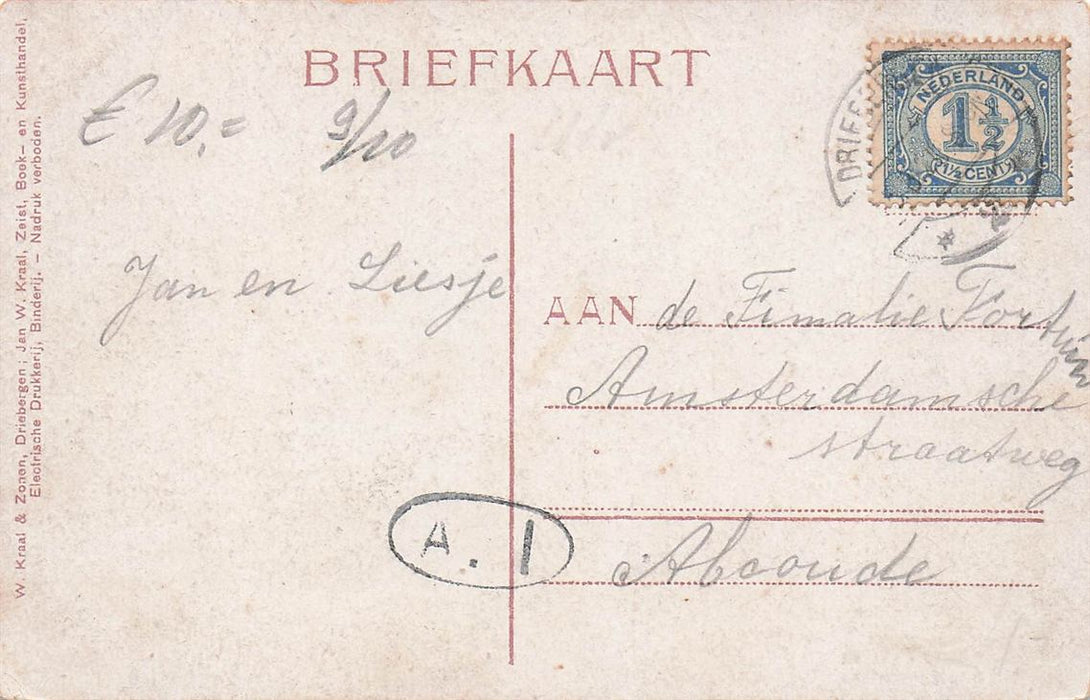 W. Kraal & Zonen, Driebergen; Jan W. Kraal, Zeist, Boek- en Kunsthandel,
Electrische Drukkerij, Binderij. – Nadruk verboden.
BRIEFKAART
€ 10,= 9/20
NEDERLAND
1 1/2
1½ CENT
Jan en Liesje
AAN de Fimalie Fortuin
Amsterdamsche
straatweg
Abcoude
A. 1